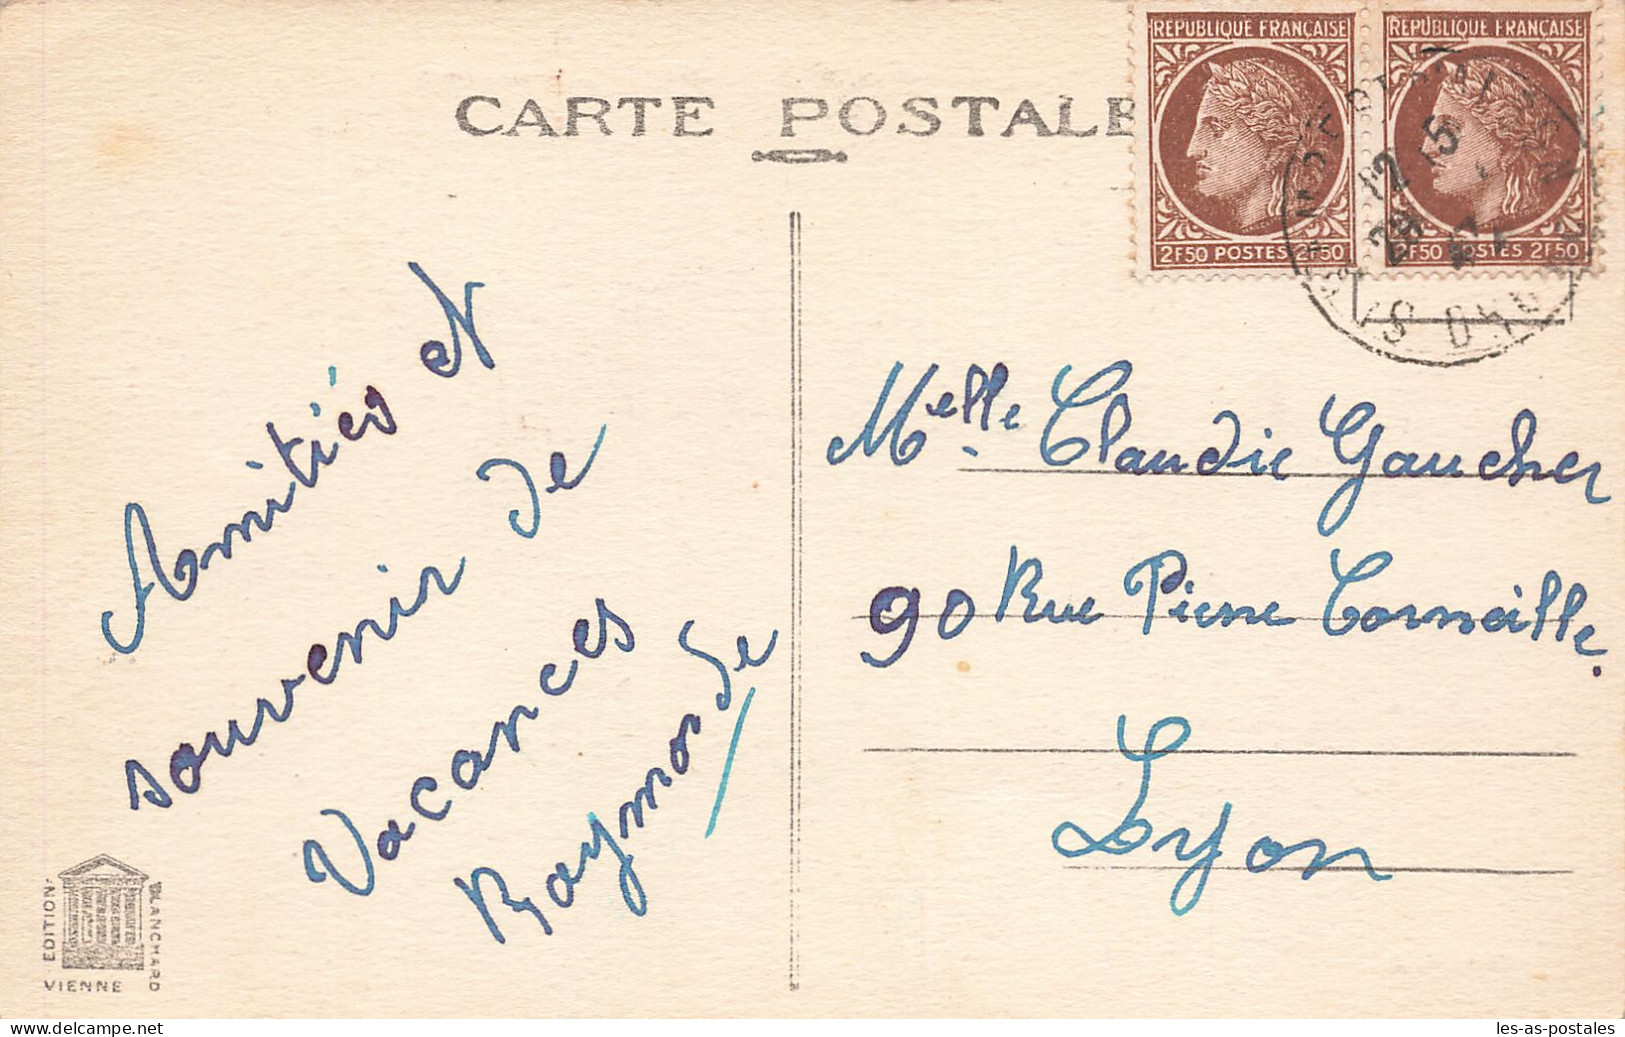 CARTE POSTALE
REPUBLIQUE FRANÇAISE
2F50 POSTES 2F50
REPUBLIQUE FRANÇAISE
2F50 POSTES 2F50
12 15
Amitiés et
souvenir de
Vacances
Raymonde
Melle. Claudie Gaucher
90 Rue Pierre Corneille.
Lyon
EDITION
BLANCHARD
VIENNE
website-mark: delcampe.net
les-as-postales